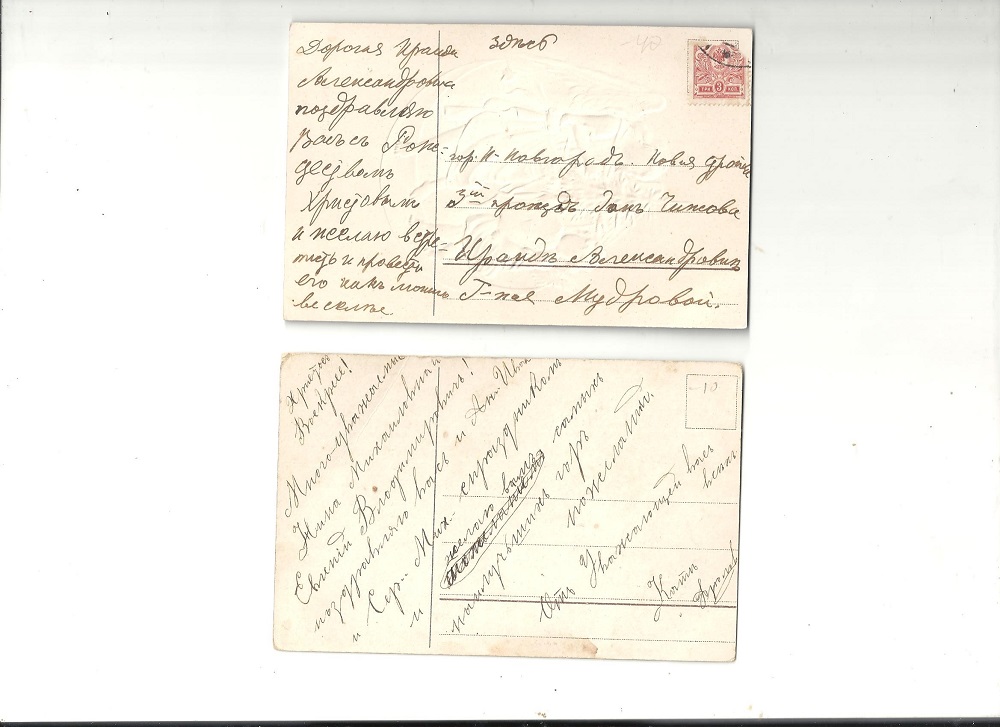 Дорогая Ираида
Александровна
поздравляю
Васъ съ Рож=
деством
Христовымъ
и желаю встре=
тить и провести
его какъ можно
веселѣе
здѣсь
-40
3
гор. Н-Новгородъ. Новая
3ій проездъ домъ Чижова
Ираидѣ Александровнѣ
Г-жѣ Мудровой.
Христосъ
Воскресе!
Многоуважаемые
Нина Михайловна и
Евгеній Владимировичъ!
поздравляю Васъ и Ан. Ив.
и Сер. Мих. съ праздником
и желаю вамъ самыхъ
наилучшихъ
пожеланій.
Отъ Уважающей васъ
Кати
-10